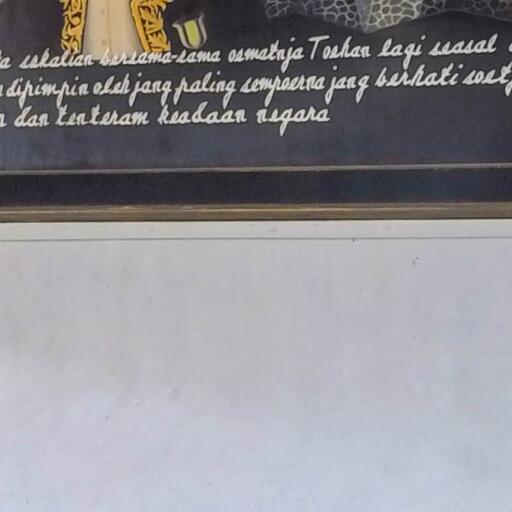 sekalian bersama-sama osmatnja Toehan lagi seasal
dipimpin oleh jang paling sempoerna jang berhati soetj
dan tenteram keadaan negara